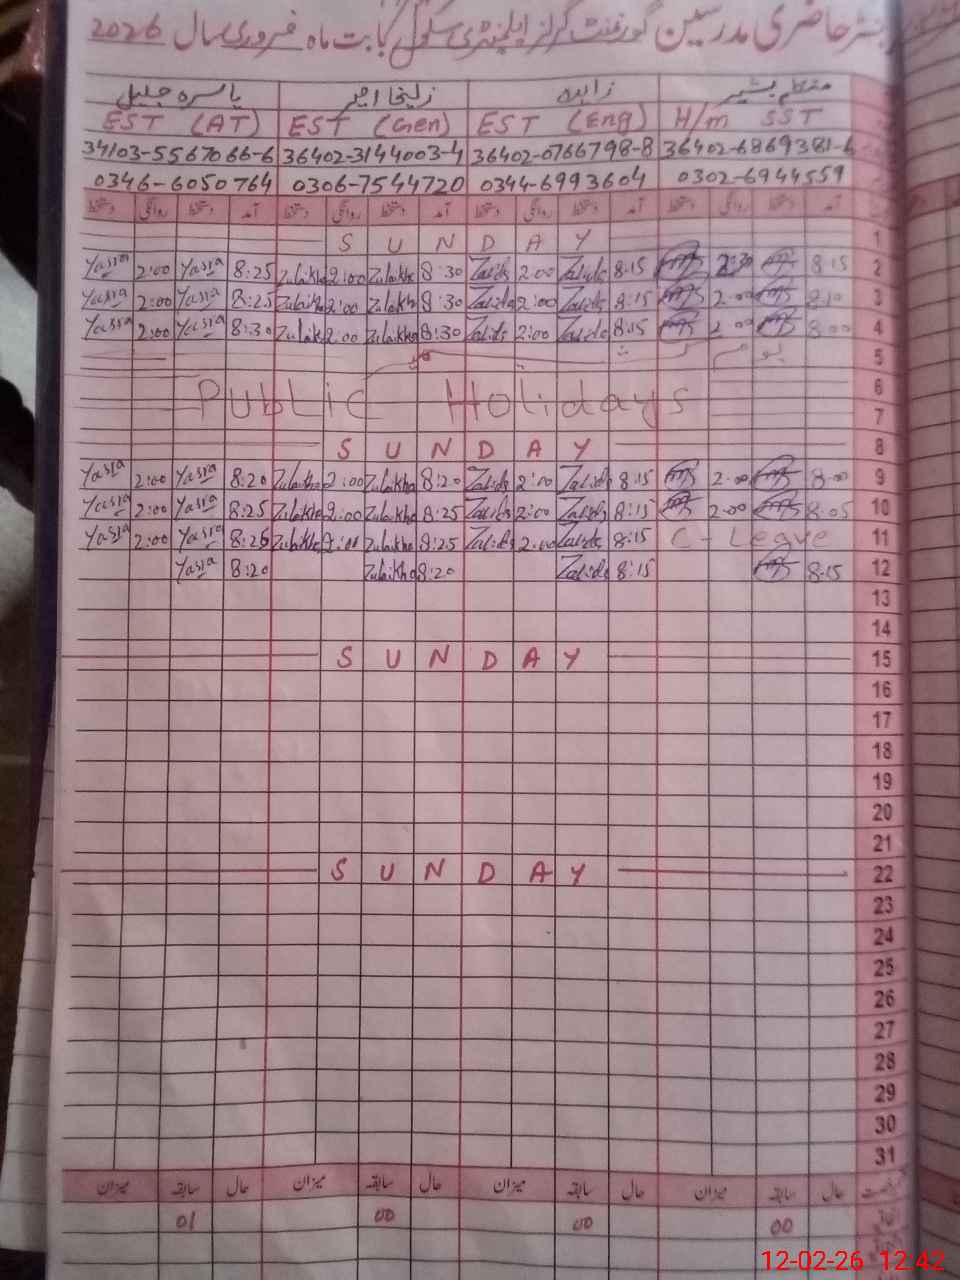 رجسٹر حاضری مدرسین گورنمنٹ گرلز ایلیمنٹری سکول بابت ماہ فروری سال 2026
بشیر زاہدہ زلیخا یاسرہ جلیل
H/m SST EST (Eng) EST (Gen) EST (AT)
34103-5567066-6 36402-3144003-4 36402-0766798-8 36402-6869381-
0346-6050764 0306-7544720 0344-6993604 0302-6944559
آمد دستخط روانگی دستخط آمد دستخط روانگی دستخط آمد دستخط روانگی دستخط آمد دستخط روانگی دستخط
SUNDAY 1
Yasra 2:00 Yasra 8:25 Zulaikha 2:00 Zulaikha 8:30 Zahida 2:00 Zahida 8:15 2:30 8:15 2
Yasra 2:00 Yasra 8:25 Zulaikha 2:00 Zulaikha 8:30 Zahida 2:00 Zahida 8:15 2:00 8:10 3
Yasra 2:00 Yasra 8:30 Zulaikha 2:00 Zulaikha 8:30 Zahida 2:00 Zahida 8:15 2:00 8:00 4
5
Public Holidays 6
7
SUNDAY 8
Yasra 2:00 Yasra 8:20 Zulaikha 2:00 Zulaikha 8:20 Zahida 2:00 Zahida 8:15 2:00 8:00 9
Yasra 2:00 Yasra 8:25 Zulaikha 2:00 Zulaikha 8:25 Zahida 2:00 Zahida 8:15 2:00 8:05 10
Yasra 2:00 Yasra 8:25 Zulaikha 2:00 Zulaikha 8:25 Zahida 2:00 Zahida 8:15 C-Leave 11
Yasra 8:20 Zulaikha 8:20 Zahida 8:15 8:15 12
13
14
SUNDAY 15
16
17
18
19
20
21
SUNDAY 22
23
24
25
26
27
28
29
30
31
حال سابقہ میزان حال سابقہ میزان حال سابقہ میزان حال سابقہ میزان
01 00 00 00
12-02-26 12:42